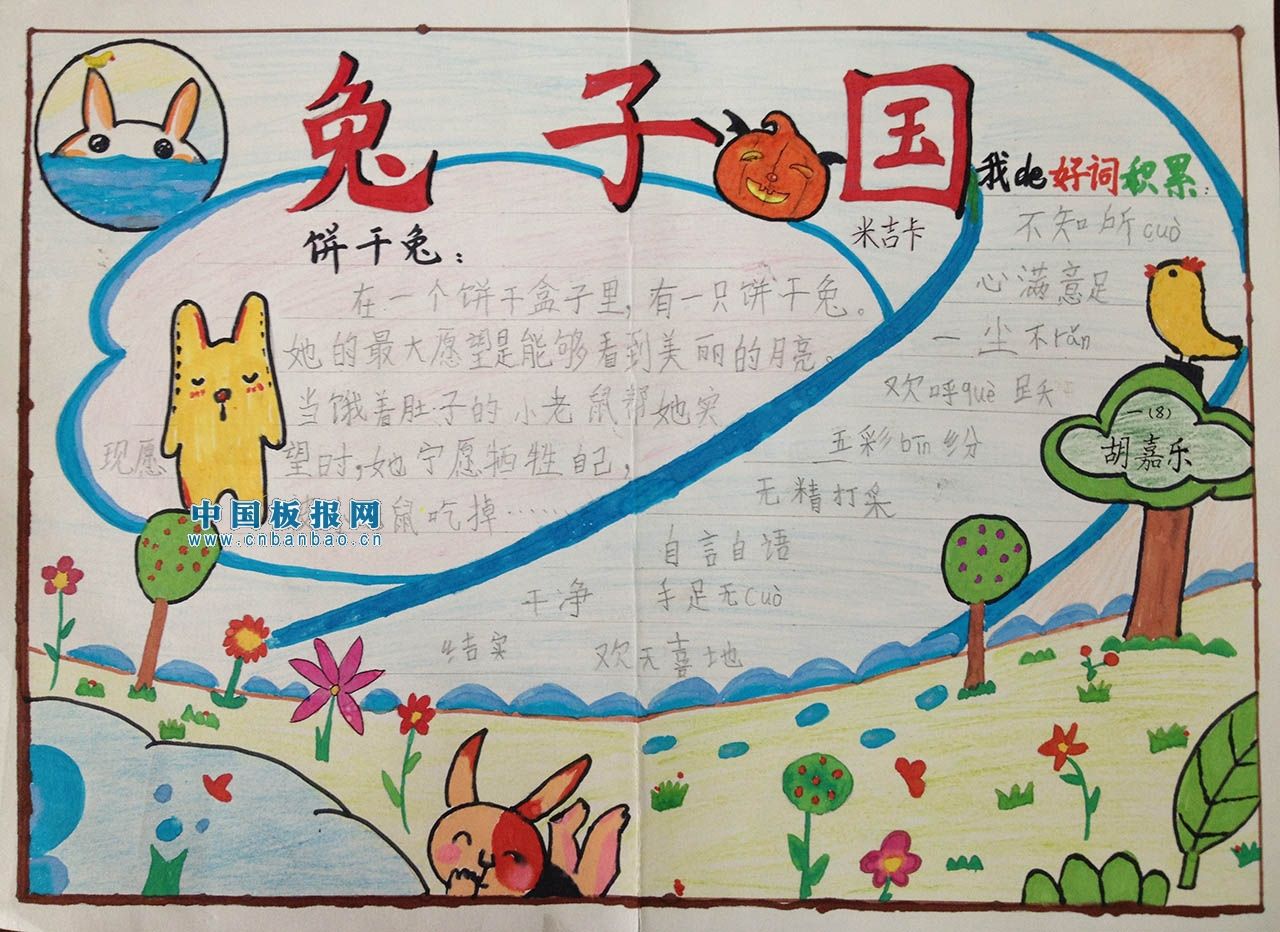 兔子国
米吉卡
饼干兔：
在一个饼干盒子里，有一只饼干兔。
她的最大愿望是能够看到美丽的月亮。
当饿着肚子的小老鼠帮她实
现愿望时，她宁愿牺牲自己，
鼠吃掉……
我de好词积累：
不知所cuò
心满意足
一尘不rǎn
欢呼què跃
五彩bīn纷
无精打采
自言自语
干净 手足无cuò
结实 欢天喜地
一(8)
胡嘉乐
中国板报网
www.cnbanbao.cn